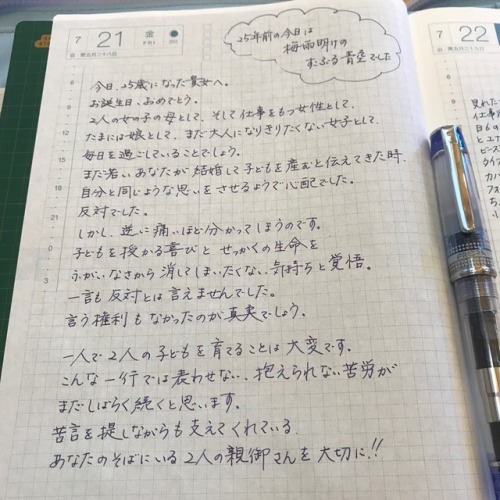 7
21
金
FRI
25年前の今日は
梅雨明けの
すぶる青空でした
7
22
今日、25歳になった貴女へ。
お誕生日、おめでとう。
2人の女の子の母として、そして仕事をもつ女性として、
たまには娘として、まだ大人になりきりたくない女子として、
毎日を過ごしていることでしょう。
まだ若いあなたが結婚して子どもを産むと伝えてきた時、
自分と同じような思いをさせるようで心配でした。
反対でした。
しかし、逆に痛いほど分かってしまうのです。
子どもを授かる喜びと せっかくの生命を
ふがいなさから消してしまいたくない、気持ちと覚悟。
一言も反対とは言えませんでした。
言う権利もなかったのが真実でしょう。
一人で2人の子どもを育てることは大変です。
こんな一行では表わせない、抱えられない苦労が
まだしばらく続くと思います。
苦言を提しながらも支えてくれている、
あなたのそばにいる2人の親御さんを大切に!!
見れた
仕事